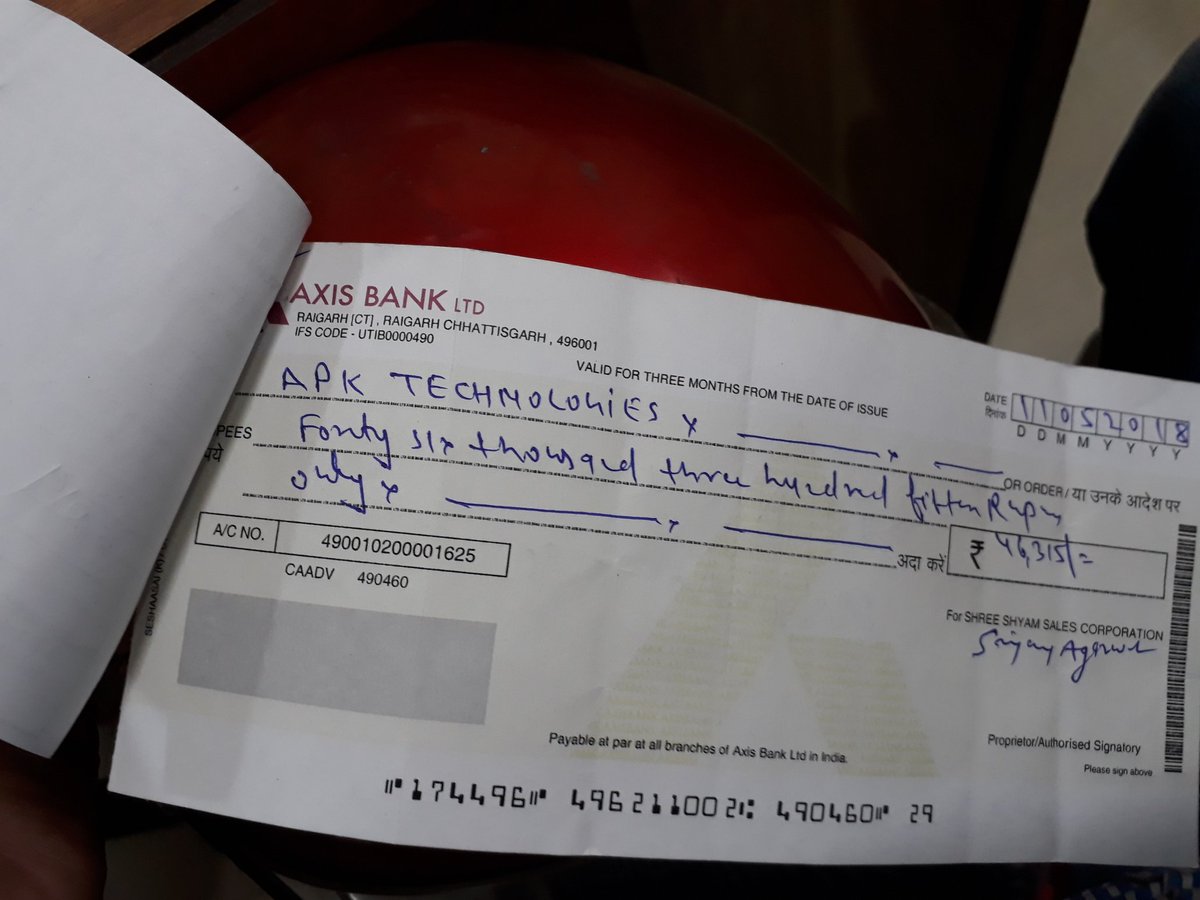 AXIS BANK LTD
RAIGARH [CT] , RAIGARH CHHATTISGARH , 496001
IFS CODE - UTIB0000490
VALID FOR THREE MONTHS FROM THE DATE OF ISSUE
DATE 11052018
दिनांक D D M M Y Y Y Y
APK TECHNOLOGIES x x
OR ORDER / या उनके आदेश पर
PEES Forty six thousand three hundred fifteen Rupees
only x x
अदा करें ₹ 46,315/=
A/C NO. 490010200001625
CAADV 490460
For SHREE SHYAM SALES CORPORATION
Agarwal
Proprietor/Authorised Signatory
Please sign above
Payable at par at all branches of Axis Bank Ltd in India.
⑈174496⑈ 496211002⑆ 490460⑈ 29